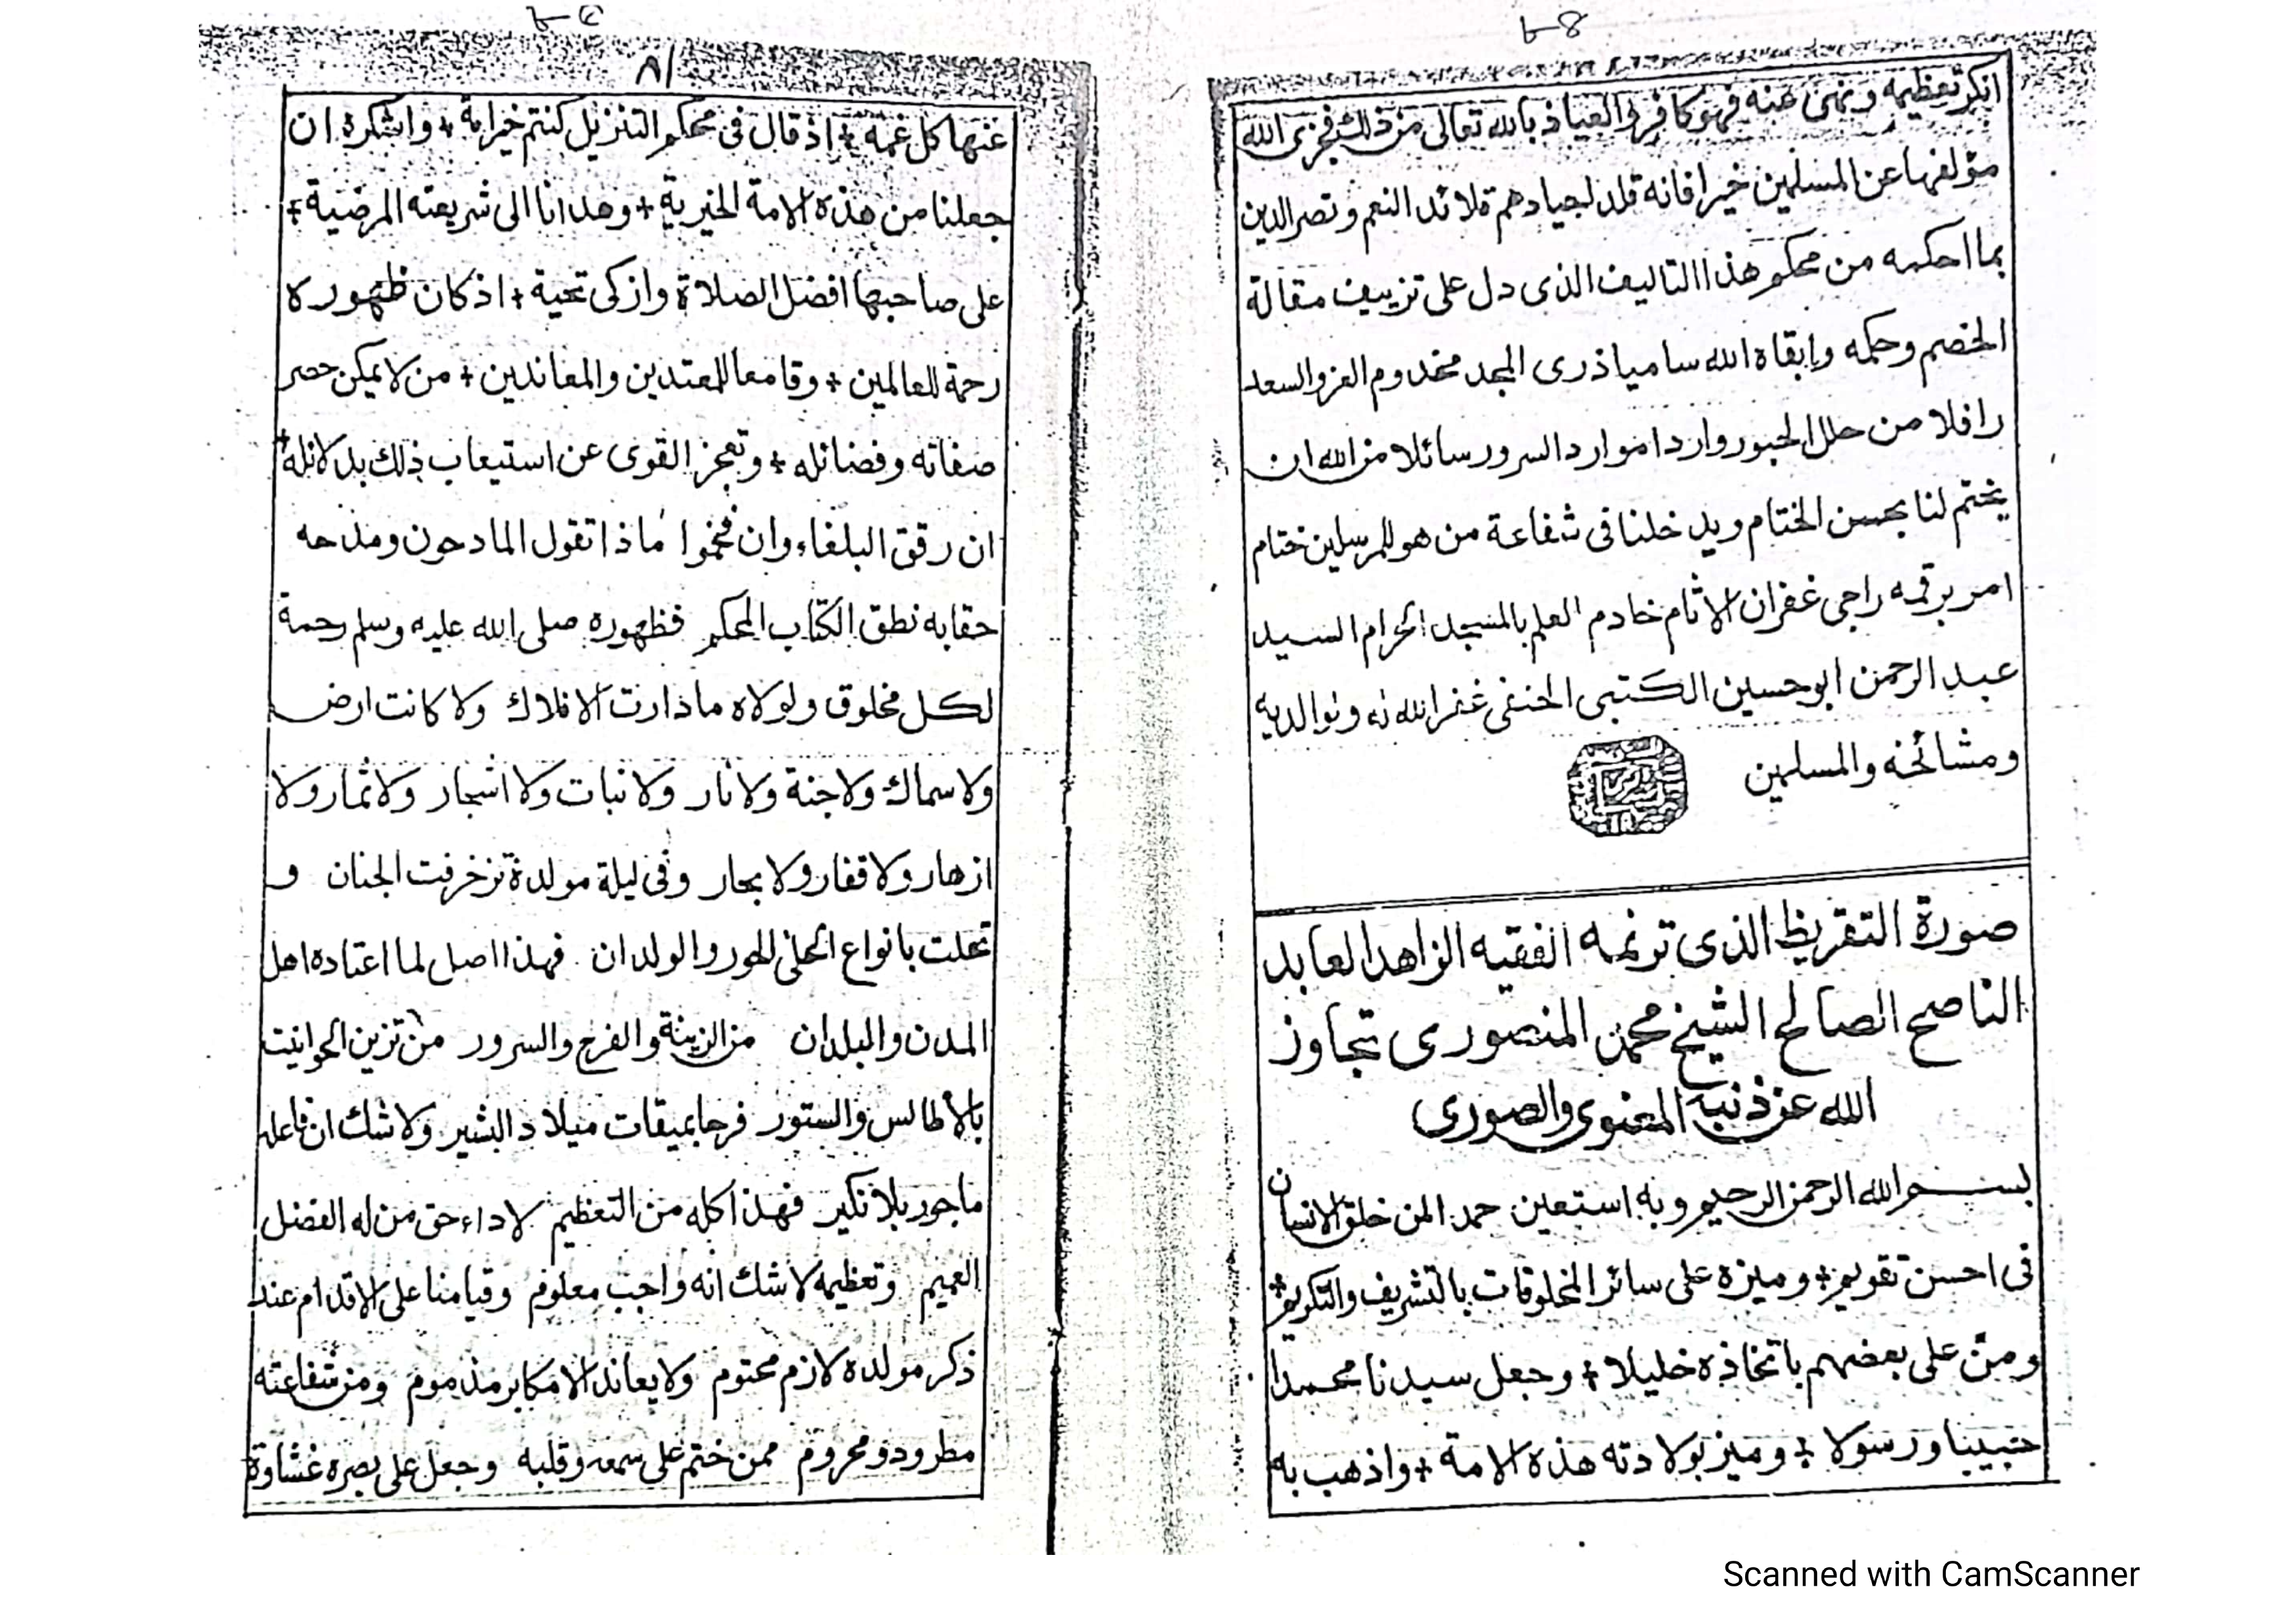 انكر تعظيمه ونهى عنه فهو كافر والعياذ بالله تعالى من ذلك فجزى الله
مؤلفها عن المسلمين خيرا فانه قلد لجيادهم قلائد النعم ونصر الدين
بما احكمه من محكم هذا التاليف الذى دل على تزييف مقالة
الخصم وحكمه وابقاه الله ساميا ذرى المجد مخدوم العز والسعد
رافلا من حلل الحبور واردا موارد السرور سائلا من الله ان
يختم لنا بحسن الختام ويدخلنا فى شفاعة من هو للمرسلين ختام
امر برقمه راجى غفران الاثام خادم العلم بالمسجد الحرام السيد
عبد الرحمن ابو حسين الكتبى الحنفى غفر الله له ولوالديه
ومشائخه والمسلمين
صورة التقريظ الذى ترنمه الفقيه الزاهد العابد
الناصح الصالح الشيخ محمد المنصورى تجاوز
الله عن ذنبه المعنوى والصورى
بسم الله الرحمن الرحيم وبه استعين حمدا لمن خلق الانسان
فى احسن تقويم + وميزه على سائر المخلوقات بالتشريف والتكريم +
ومن على بعضهم باتخاذه خليلا + وجعل سيدنا محمدا
حبيبا ورسولا + وميز بولادته هذه الامة + واذهب به
٨١
عنها كل غمه + اذ قال فى محكم التنزيل كنتم خير امة + واشكره ان
جعلنا من هذه الامة الخيرية + وهدانا الى شريعته المرضية +
على صاحبها افضل الصلاة وازكى تحية + اذ كان ظهوره
رحمة للعالمين + وقامعا للمعتدين والمعاندين + من لا يمكن حصر
صفاته وفضائله + وتعجز القوى عن استيعاب ذلك بدلائله +
ان رقق البلغاء وان فخموا ماذا تقول المادحون ومدحه
حقا به نطق الكتاب المحكم فظهوره صلى الله عليه وسلم رحمة
لكل مخلوق ولولاه ما دارت الافلاك ولا كانت ارض
ولا سماك ولا جنة ولا نار ولا نبات ولا اشجار ولا ثمار ولا
ازهار ولا قفار ولا بحار وفى ليلة مولدة تزخرفت الجنان و
تحلت بانواع الحلى الحور والولدان فهذا اصل لما اعتاده اهل
المدن والبلدان من الزينة والفرح والسرور من تزين الحوانيت
بالاطالس والستور فرحا بميقات ميلاد البشير ولا شك ان فاعله
ماجور بلا نكير فهذا كله من التعظيم لاداء حق من له الفضل
العميم وتعظيمه لا شك انه واجب معلوم وقيامنا على الاقدام عند
ذكر مولده لازم محتوم ولا يعاند الا مكابر مذموم ومن شفاعته
مطرود ومحروم ممن ختم على سمعه وقلبه وجعل على بصره غشاوة
Scanned with CamScanner